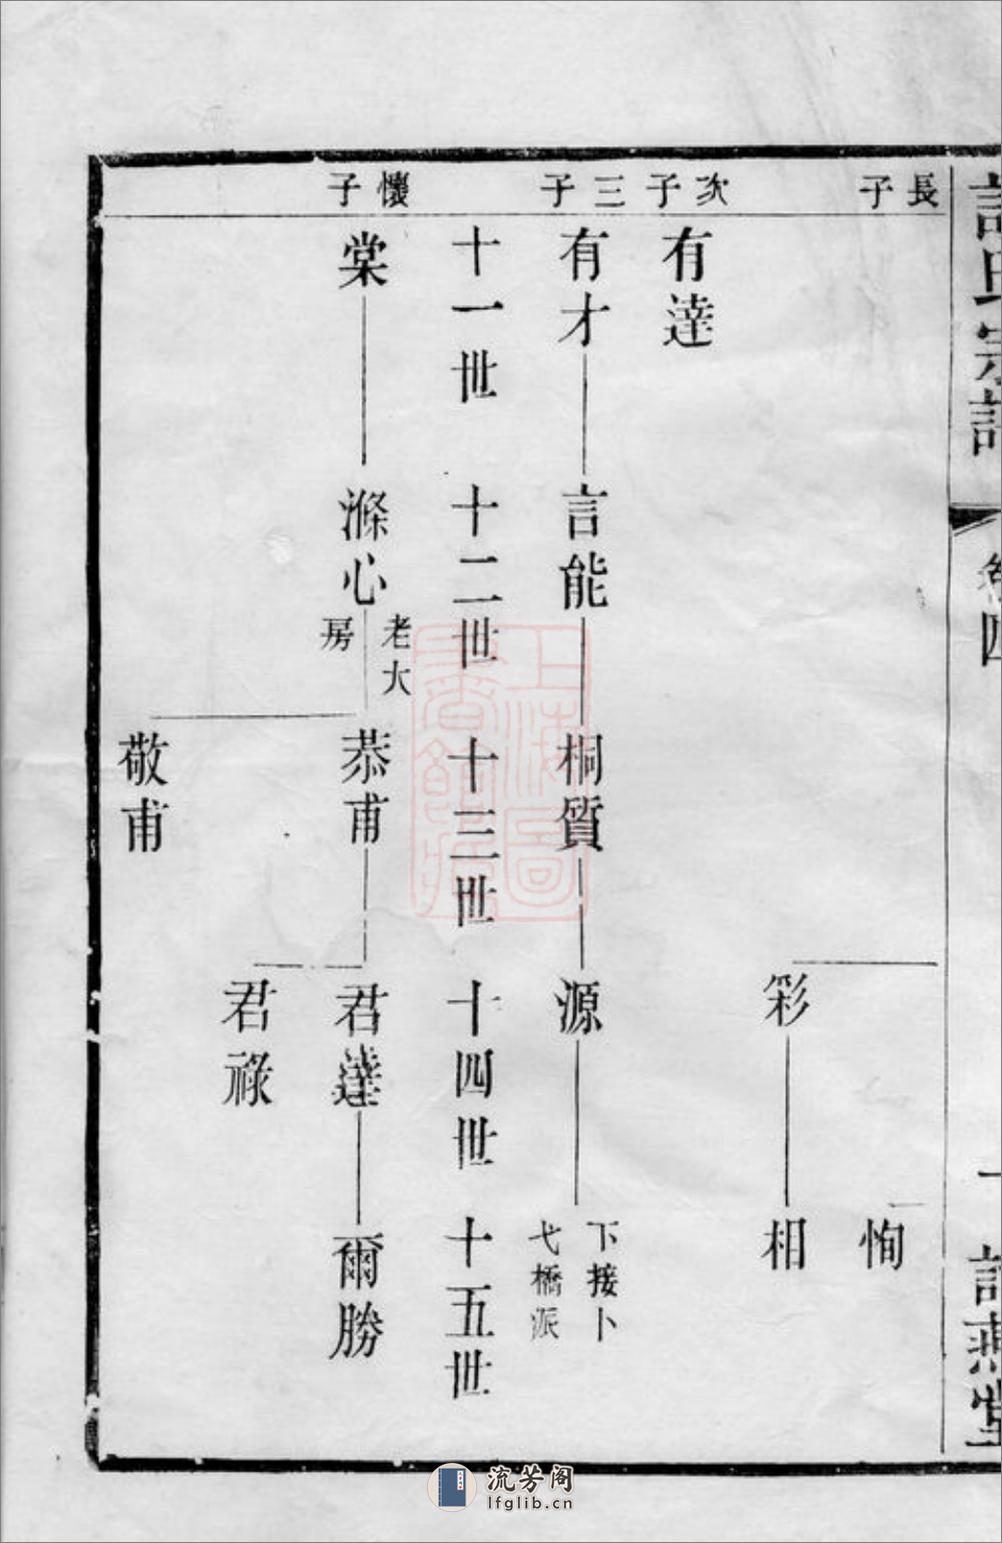 氏宗譜
卷四
燕堂
長子
恂
彩
相
次子
有達
三子
有才
言能
桐質
源
下接卜
弋橋派
十一世
十二世
十三世
十四世
十五世
懷子
棠
滌心
老大
房
恭甫
君達
爾勝
君祿
敬甫
上海圖
書館藏
流芳阁
lfglib.cn